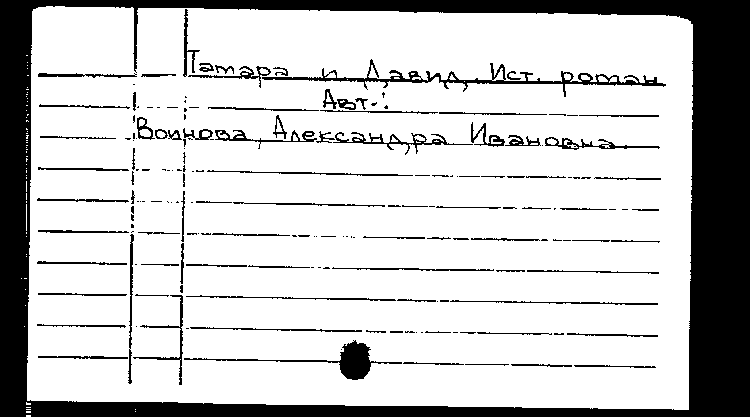 Тамара и Давид. Ист. роман
Авт.:
Воинова, Александра Ивановна.